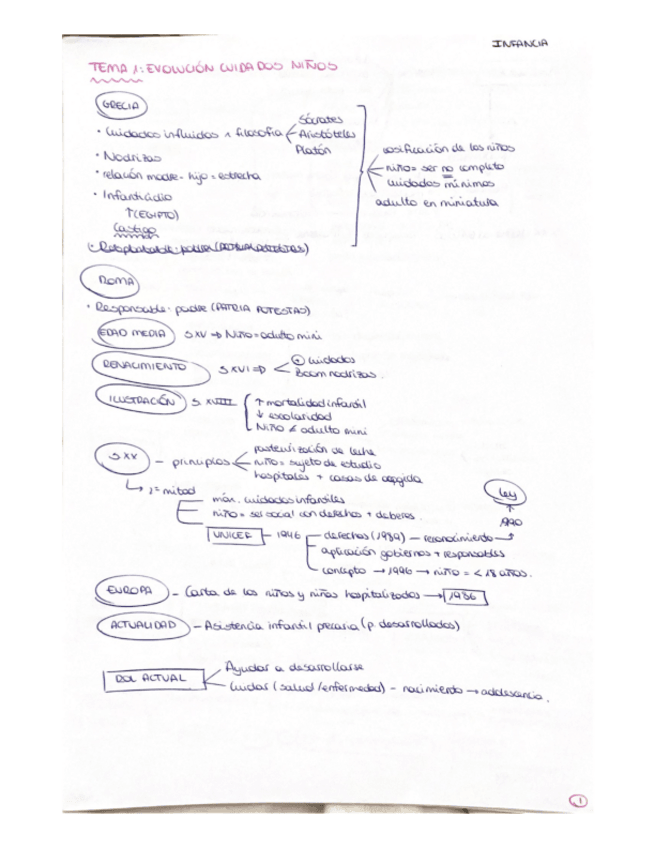 INFANCIA
TEMA 1: EVOLUCIÓN CUIDADOS NIÑOS
GRECIA
· Cuidados influidos x filosofía Sócrates
Aristóteles
Platón
· Nodrizas
· relación madre-hijo = estrecha
· Infanticidio
↑(EGIPTO)
Castigo
cosificación de los niños
niño = ser no completo
cuidados mínimos
adulto en miniatura
ROMA
· Responsable: padre (PATRIA POTESTAS)
EDAD MEDIA S XV ⇒ Niño = adulto mini
RENACIMIENTO S XVI ⇒ + cuidados
Boom nodrizas.
ILUSTRACIÓN S. XVIII ↑ mortalidad infantil
↓ escolaridad
Niño ≠ adulto mini
S.XX – principios pasteurización de leche
niño = sujeto de estudio
hospitales + casas de acogida
↳ 2ª mitad
máx. cuidados infantiles
niño = ser social con derechos + deberes.
UNICEF – 1946 derechos (1989) – reconocimiento → 1990 ↑ Ley
aplicación gobiernos + responsables
concepto → 1996 → niño = < 18 años.
EUROPA – Carta de los niños y niñas hospitalizados → 1986
ACTUALIDAD – Asistencia infantil precaria (p desarrollados)
ROL ACTUAL Ayudar a desarrollarse
Cuidar (salud/enfermedad) – nacimiento → adolescencia.
1